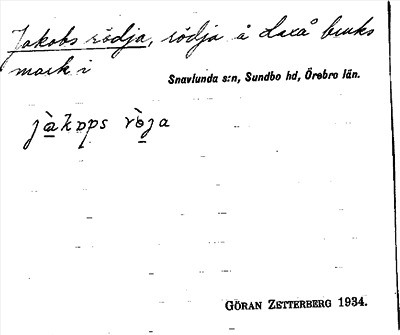 Jakobs rödja, rödja å Laxå bruks
mark i
Snavlunda s:n, Sundbo hd, Örebro län.
jàkɒps ròja
GÖRAN ZETTERBERG 1934.